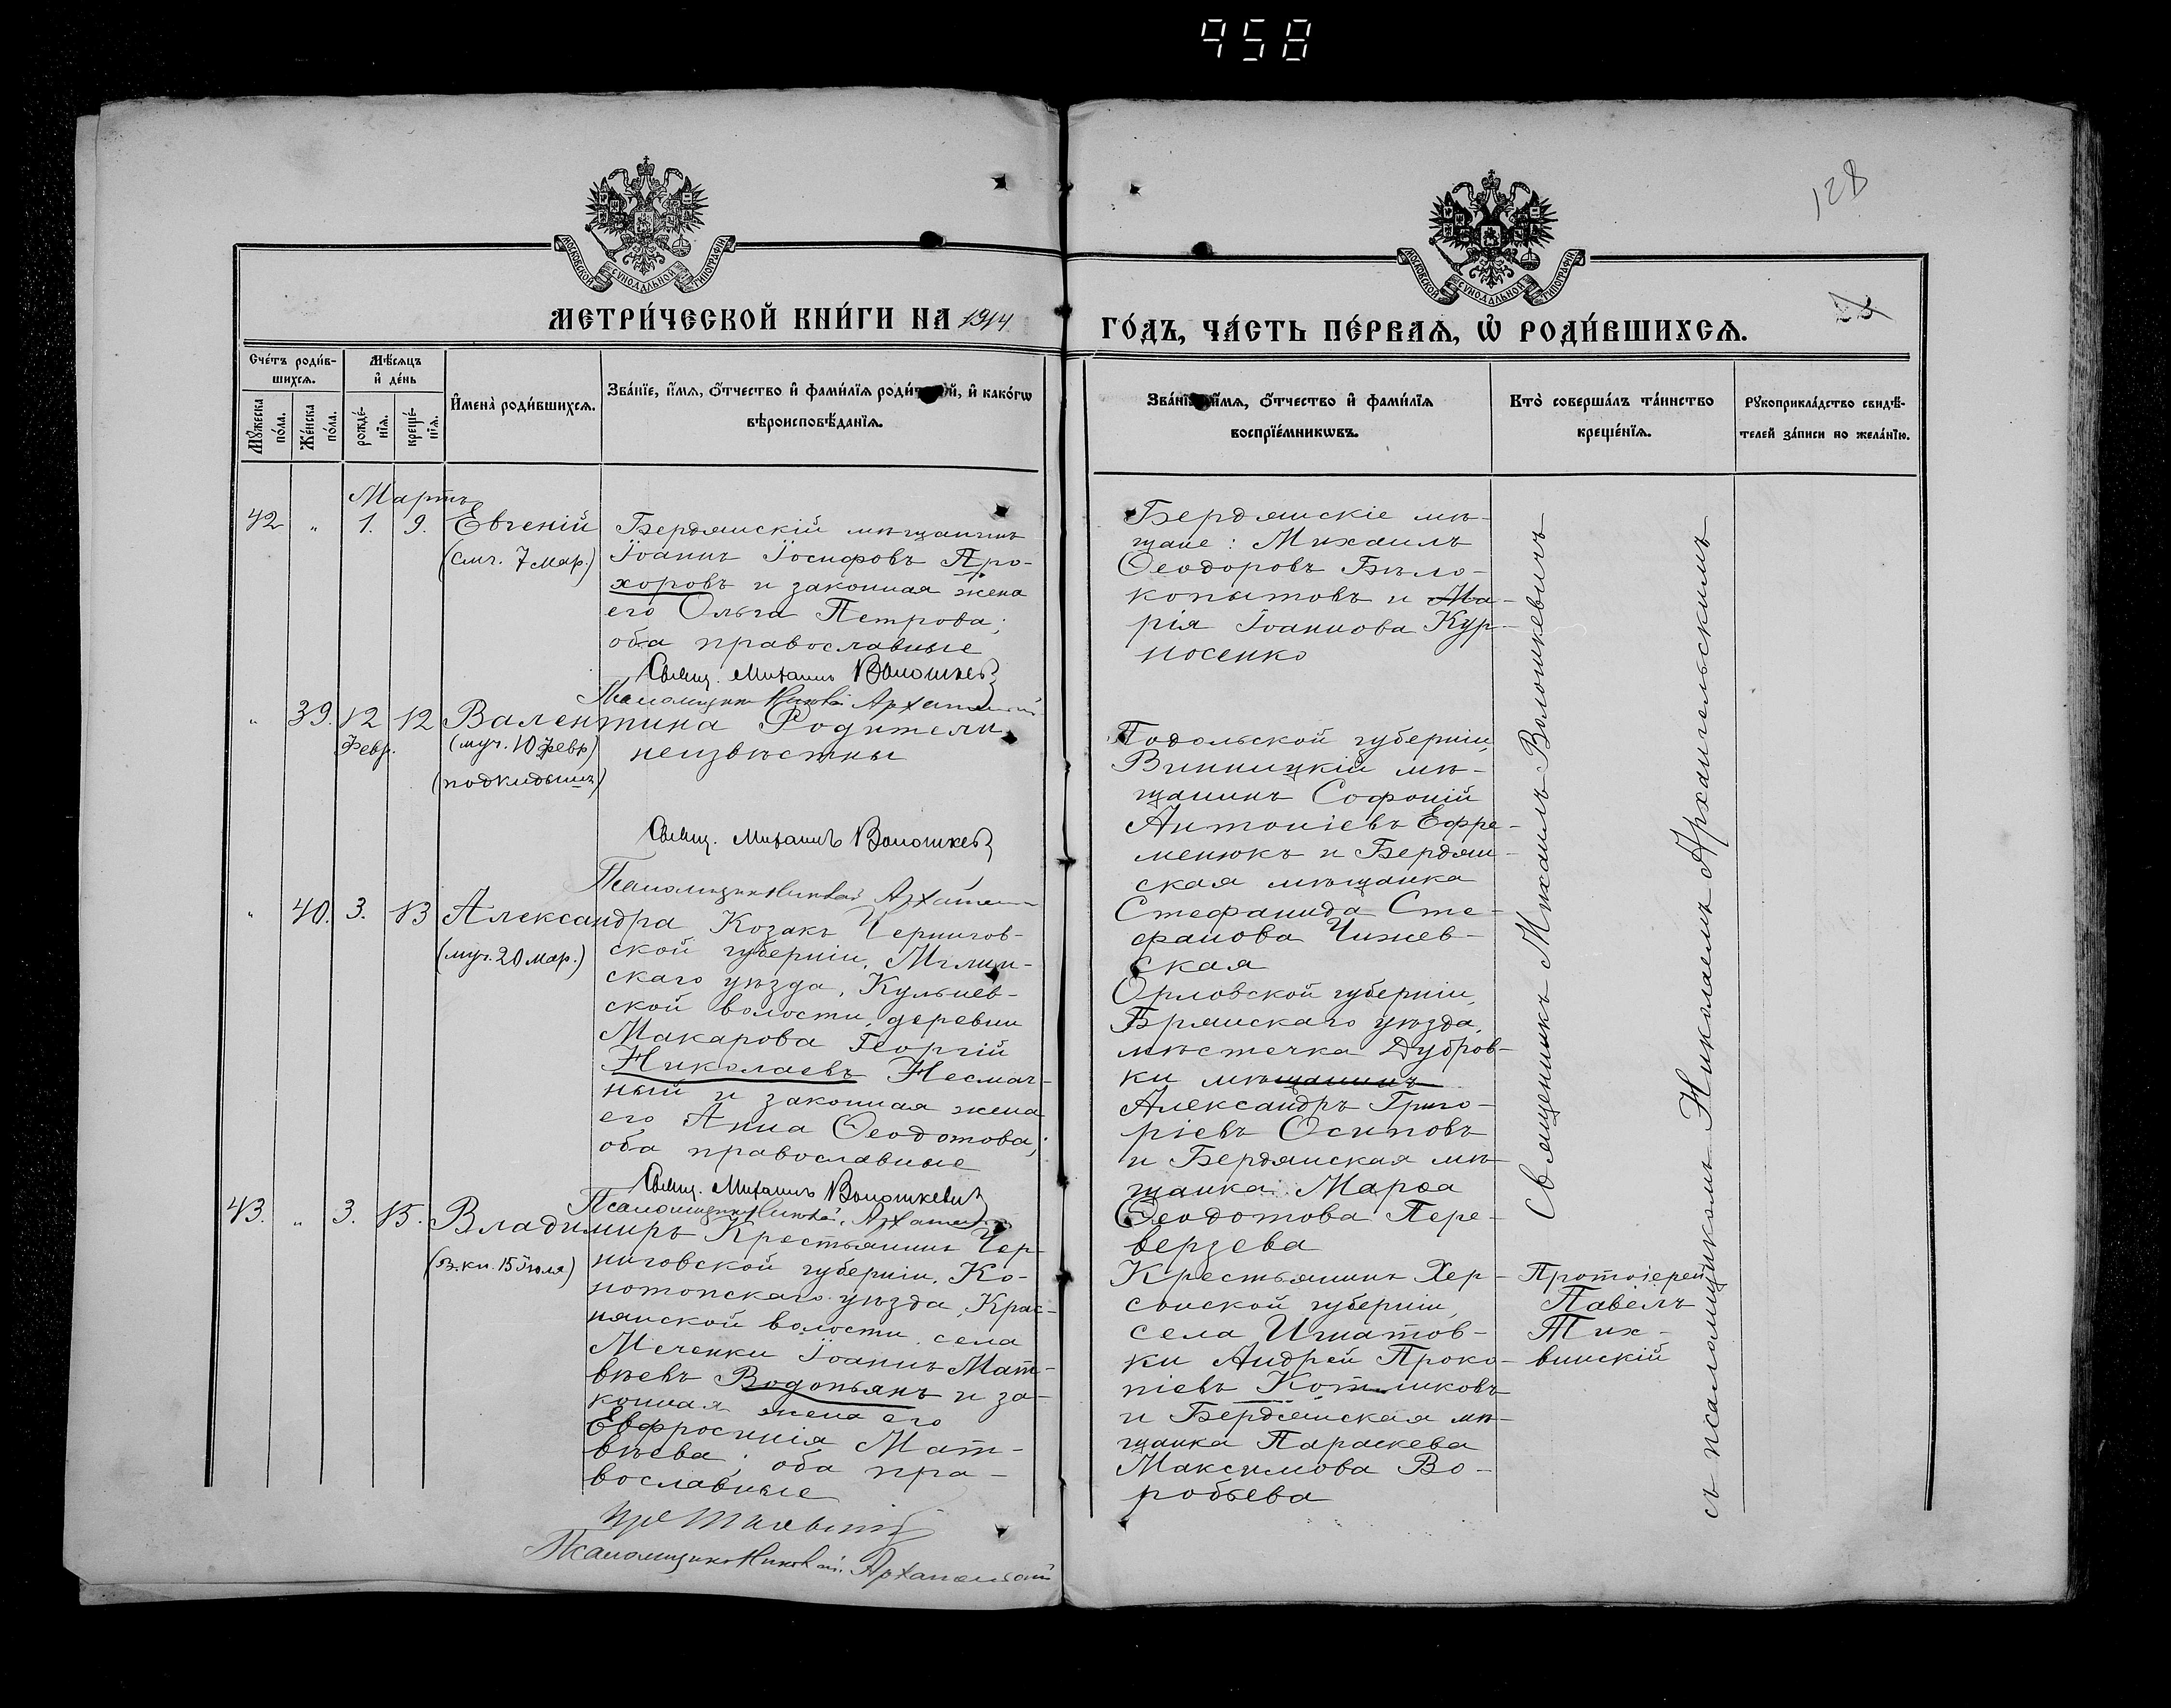 958
128
МОСКОВСКОЙ СѴНОДАЛЬНОЙ ТИПОГРАФІИ
МОСКОВСКОЙ СѴНОДАЛЬНОЙ ТИПОГРАФІИ
МЕТРИ́ЧЕСКОЙ КНИ́ГИ НА 1914
ГО́ДЪ, ЧА́СТЬ ПЕ́РВАѦ, Ѡ҆ РОДИ́ВШИХСѦ.
Сче́тъ роди́в-
шихсѧ.
Мѣ́сѧцъ
и҆ де́нь
Мꙋ́жеска
по́ла.
Же́нска
по́ла.
рожде́-
нїѧ.
креще́-
нїѧ.
И҆мена̀ роди́вшихсѧ.
Зва́нїе, и҆́мѧ, ѻ҆́тчество и҆ фами́лїѧ роди́телей, и҆ како́гѡ
вѣроисповѣ́данїѧ.
Зва́нїе, и҆́мѧ, ѻ҆́тчество и҆ фами́лїѧ
воспрїе́мникѡвъ.
Кто̀ соверша́лъ та́инство
креще́нїѧ.
Рꙋкоприкла́дство свидѣ́-
телей за́писи по жела́нїю.
Мартъ
42 " 1. 9. Евгеній
(смч. 7 мар.)
Бердянскій мѣщанинъ
Іоаннъ Іосифовъ Про-
хоровъ и законная жена
его Ольга Петрова;
оба православные
Свящ. Михаилъ Волошкевичъ
Псаломщикъ Николай Архангельскій
Бердянскіе мѣ-
щане: Михаилъ
Ѳеодоровъ Бѣло-
копытовъ и Ма-
рія Іоаннова Кур-
носенко
" 39. 12 12 Валентина
Февр.
(муч. 10 февр)
(подкидышъ)
Родители
неизвѣстны
Свящ. Михаилъ Волошкевичъ
Псаломщикъ Николай Архангельскій
Подольской губерніи,
Винницкій мѣ-
щанинъ Софоній
Антоніевъ Ефре-
менюкъ и Бердян-
ская мѣщанка
Стефанида Сте-
фанова Чижев-
ская
" 40. 3. 13 Александра
(муч. 20 мар.)
Козакъ Чернигов-
ской губерніи, Мглин-
скаго уѣзда, Кульнев-
ской волости, деревни
Макарова Георгій
Николаевъ Несмач-
ный и законная жена
его Анна Ѳеодотова;
оба православные
Свящ. Михаилъ Волошкевичъ
Псаломщикъ Николай Архангельскій
Орловской губерніи,
Брянскаго уѣзда,
мѣстечка Дубров-
ки мѣщанинъ
Александръ Григо-
ріевъ Осиповъ
и Бердянская мѣ-
щанка Марѳа
Ѳеодотова Пере-
верзева
43. " 3. 15. Владиміръ
(в. кн. 15 іюля)
Крестьянинъ Чер-
ниговской губерніи, Ко-
нотопскаго уѣзда, Крас-
нянской волости, села
Мѣченки Іоаннъ Мат-
вѣевъ Водопьянъ и за-
конная жена его
Евфросинія Мат-
вѣева; оба пра-
вославные
Псаломщикъ Николай Архангельскій
Крестьянинъ Хер-
сонской губерніи,
села Игнатов-
ки Андрей Проко-
піевъ Котляковъ
и Бердянская мѣ-
щанка Параскева
Максимова Во-
робьева
Протоіерей
Павелъ
Тих-
винскій
Священникъ Михаилъ Волошкевичъ
съ псаломщикомъ Николаемъ Архангельскимъ